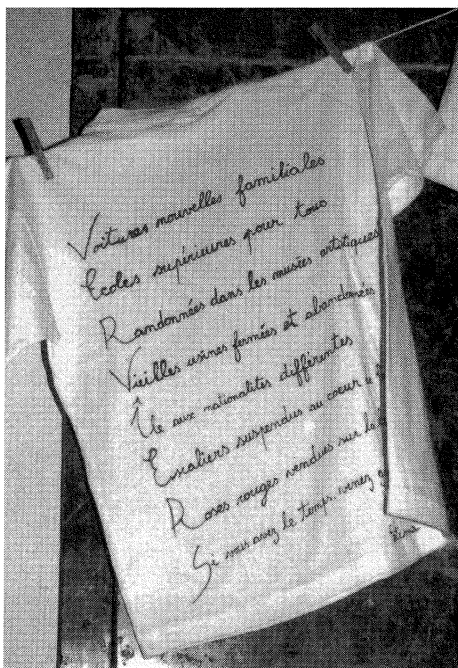 Voitures nouvelles familiales
Ecoles supérieures pour tous
Randonnées dans les musées artistiques
Vieilles usines fermées et abandonées
Île aux nationalités différentes
Escaliers suspendus au coeur
Roses rouges vendues sur le
Si vous avez le temps, venez